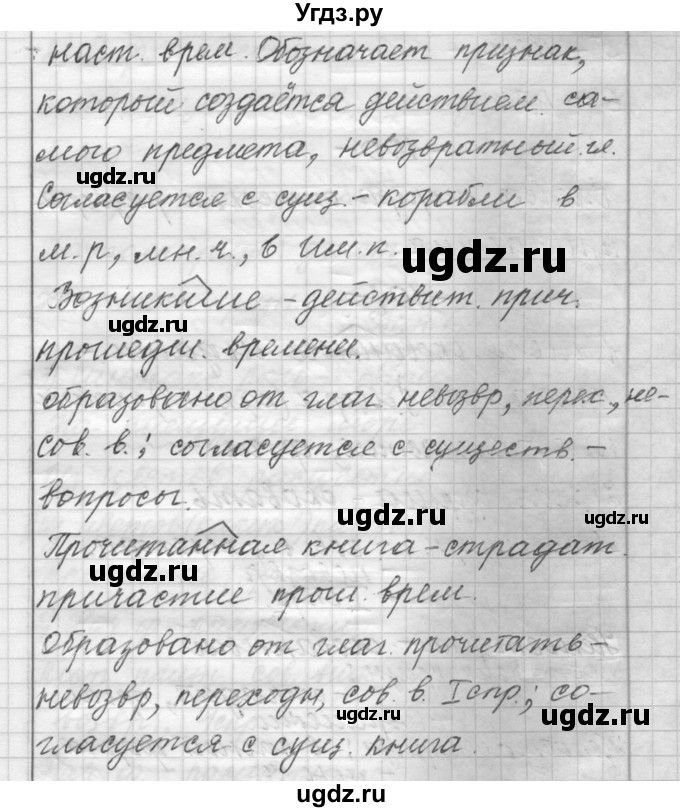 Угдз.ру
наст. врем. Обозначает признак,
который создаётся действием са-
мого предмета, невозвратный гл.
ugdz.ru
Согласуется с сущ. - корабли в
м.р, мн.ч., в Им.п.
ugdz.ru
Возникшие - действит. прич.
ugdz.ru
прошедш. времени.
образовано от глаг. невозвр, перех., не-
сов. в.; согласуется с существ. -
вопросы.
ugdz.ru
ugdz.ru
Прочитанная книга - страдат.
ugdz.ru
причастие прош. врем.
Образовано от глаг. прочитать -
невозвр, переходн, сов. в. I спр.; со-
ugdz.ru
ugdz.ru
гласуется с сущ. книга.
ugdz.ru